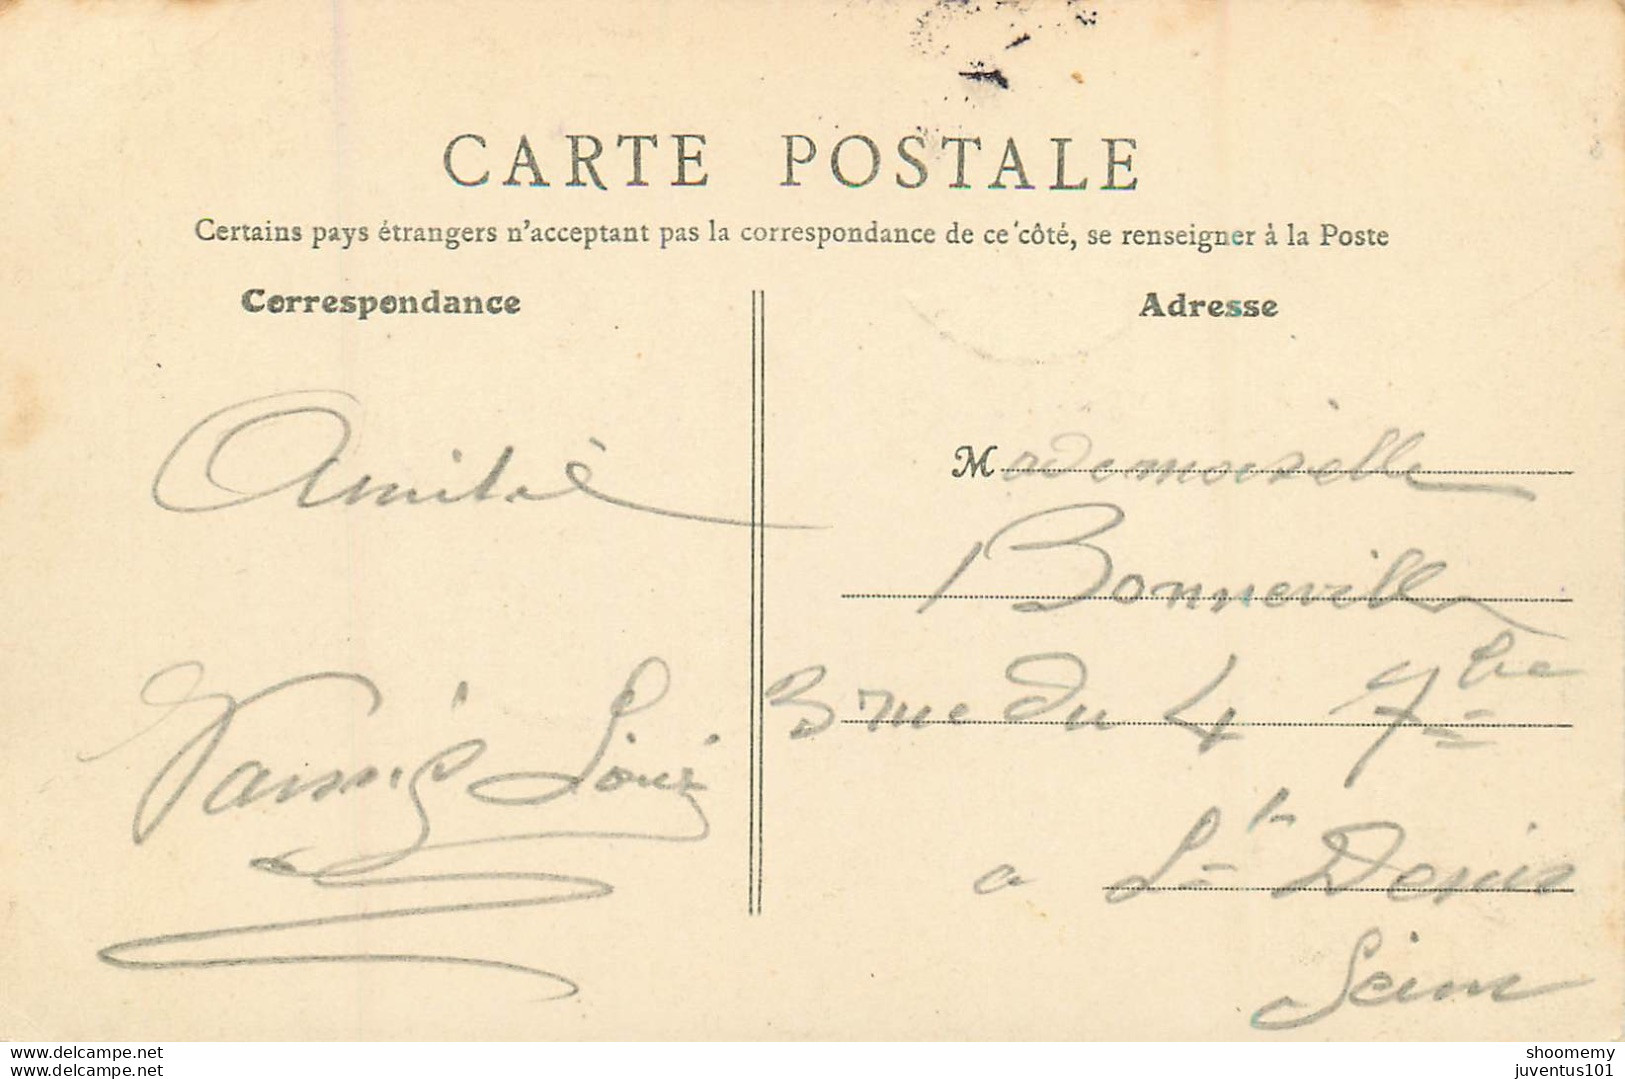 CARTE POSTALE
Certains pays étrangers n'acceptant pas la correspondance de ce côté, se renseigner à la Poste
Correspondance
Adresse
Amitié
Louis
Mademoiselle
Bonneville
3 rue du 4 7bre
a St Denis
Seine
www.delcampe.net
www.delcampe.net
shoomemy
juventus101